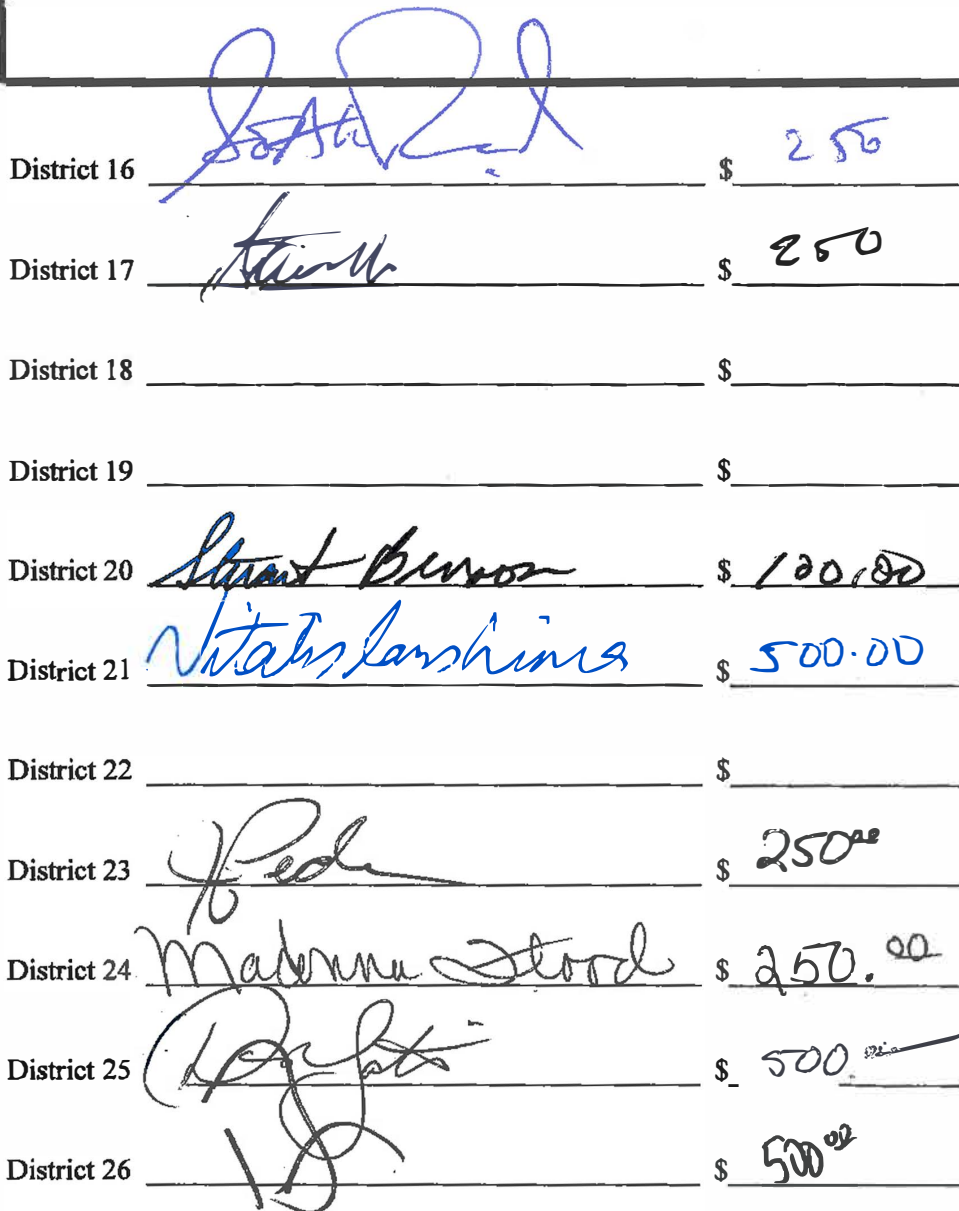 District 16 $ 250
District 17 $ 250
District 18 $
District 19 $
District 20 Stuart Benson $ 100.00
District 21 $ 500.00
District 22 $
District 23 $ 250.00
District 24 Madonna Flood $ 250.00
District 25 $ 500
District 26 $ 500.00